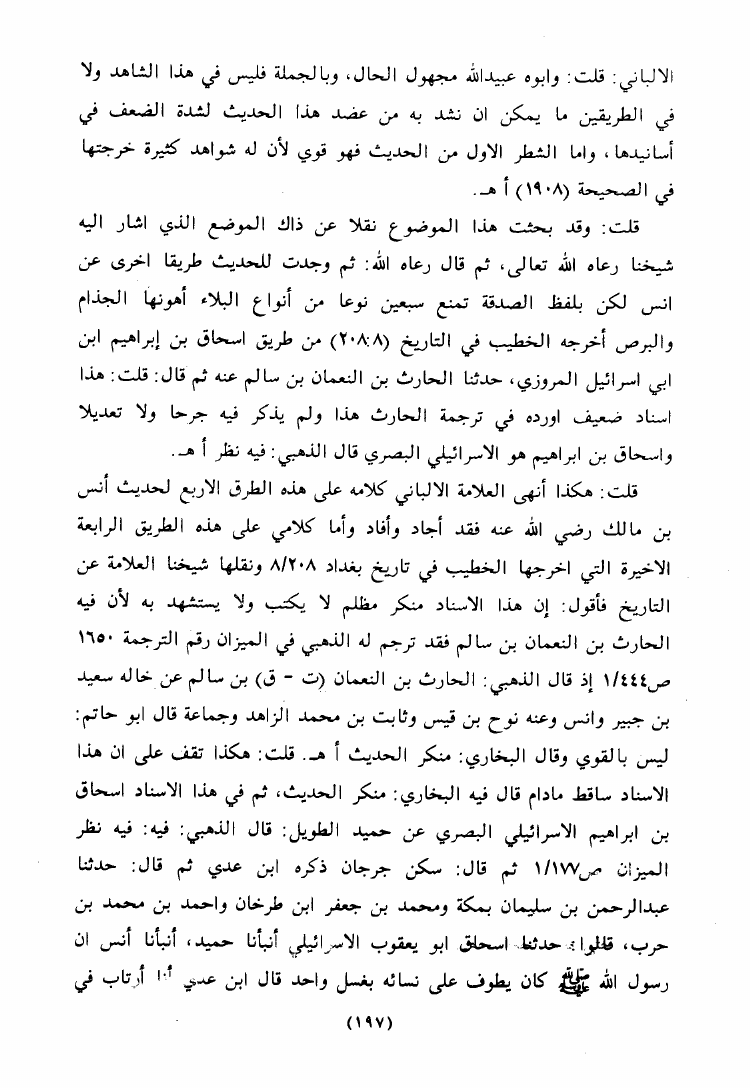 الالباني: قلت: وابوه عبيدالله مجهول الحال، وبالجملة فليس في هذا الشاهد ولا
في الطريقين ما يمكن ان نشد به من عضد هذا الحديث لشدة الضعف في
أسانيدها، واما الشطر الاول من الحديث فهو قوي لأن له شواهد كثيرة خرجتها
في الصحيحة (١٩٠٨) أ هـ.
قلت: وقد بحثت هذا الموضوع نقلا عن ذاك الموضع الذي اشار اليه
شيخنا رعاه الله تعالى، ثم قال رعاه الله: ثم وجدت للحديث طريقا اخرى عن
انس لكن بلفظ الصدقة تمنع سبعين نوعا من أنواع البلاء أهونها الجذام
والبرص أخرجه الخطيب في التاريخ (٢٠٨:٨) من طريق اسحاق بن إبراهيم ابن
ابي اسرائيل المروزي، حدثنا الحارث بن النعمان بن سالم عنه ثم قال: قلت: هذا
اسناد ضعيف اورده في ترجمة الحارث هذا ولم يذكر فيه جرحا ولا تعديلا
واسحاق بن ابراهيم هو الاسرائيلي البصري قال الذهبي: فيه نظر أ هـ.
قلت: هكذا أنهى العلامة الالباني كلامه على هذه الطرق الاربع لحديث أنس
بن مالك رضي الله عنه فقد أجاد وأفاد وأما كلامي على هذه الطريق الرابعة
الاخيرة التي اخرجها الخطيب في تاريخ بغداد ٨/٢٠٨ ونقلها شيخنا العلامة عن
التاريخ فأقول: إن هذا الاسناد منكر مظلم لا يكتب ولا يستشهد به لأن فيه
الحارث بن النعمان بن سالم فقد ترجم له الذهبي في الميزان رقم الترجمة ١٦٥٠
ص١/٤٤٤ إذ قال الذهبي: الحارث بن النعمان (ت - ق) بن سالم عن خاله سعيد
بن جبير وانس وعنه نوح بن قيس وثابت بن محمد الزاهد وجماعة قال ابو حاتم:
ليس بالقوي وقال البخاري: منكر الحديث أ هـ. قلت: هكذا تقف على ان هذا
الاسناد ساقط مادام قال فيه البخاري: منكر الحديث، ثم في هذا الاسناد اسحاق
بن ابراهيم الاسرائيلي البصري عن حميد الطويل: قال الذهبي: فيه: فيه نظر
الميزان ص١/١٧٧ ثم قال: سكن جرجان ذكره ابن عدي ثم قال: حدثنا
عبدالرحمن بن سليمان بمكة ومحمد بن جعفر ابن طرخان واحمد بن محمد بن
حرب، قالوا: حدثنا اسحاق ابو يعقوب الاسرائيلي أنبأنا حميد، أنبأنا أنس ان
رسول الله ﷺ كان يطوف على نسائه بغسل واحد قال ابن عدي أنا أرتاب في
(١٩٧)